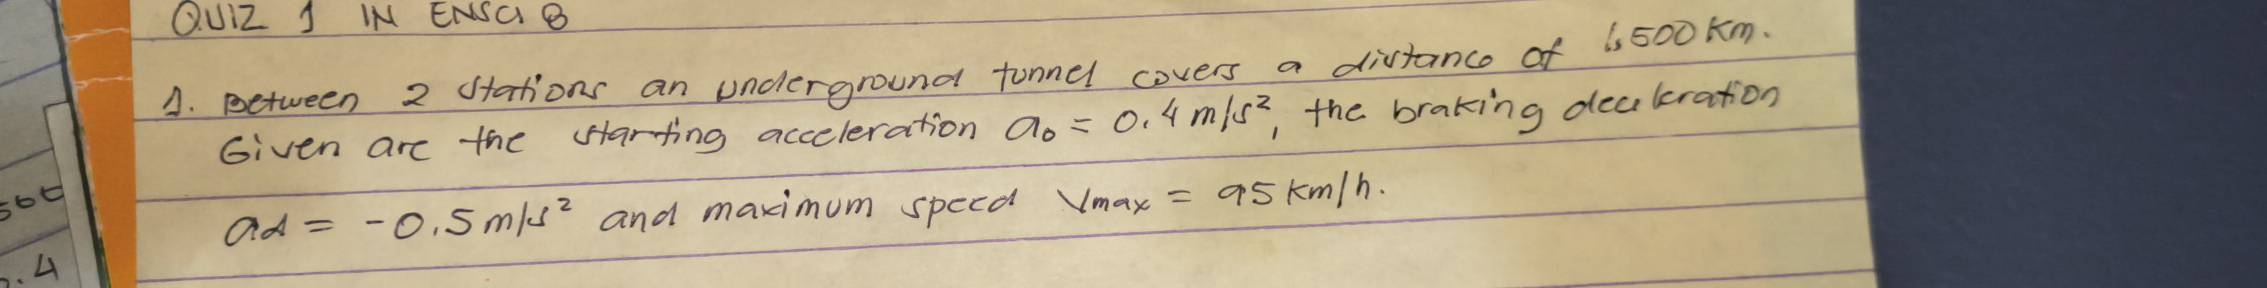 QUIZ 1 IN ENSCI 8
1. Between 2 stations an underground tunnel covers a distance of 1,500 km.
Given are the starting acceleration a₀ = 0.4 m/s², the braking deceleration
ad = -0.5 m/s² and maximum speed Vmax = 95 km/h.
.4